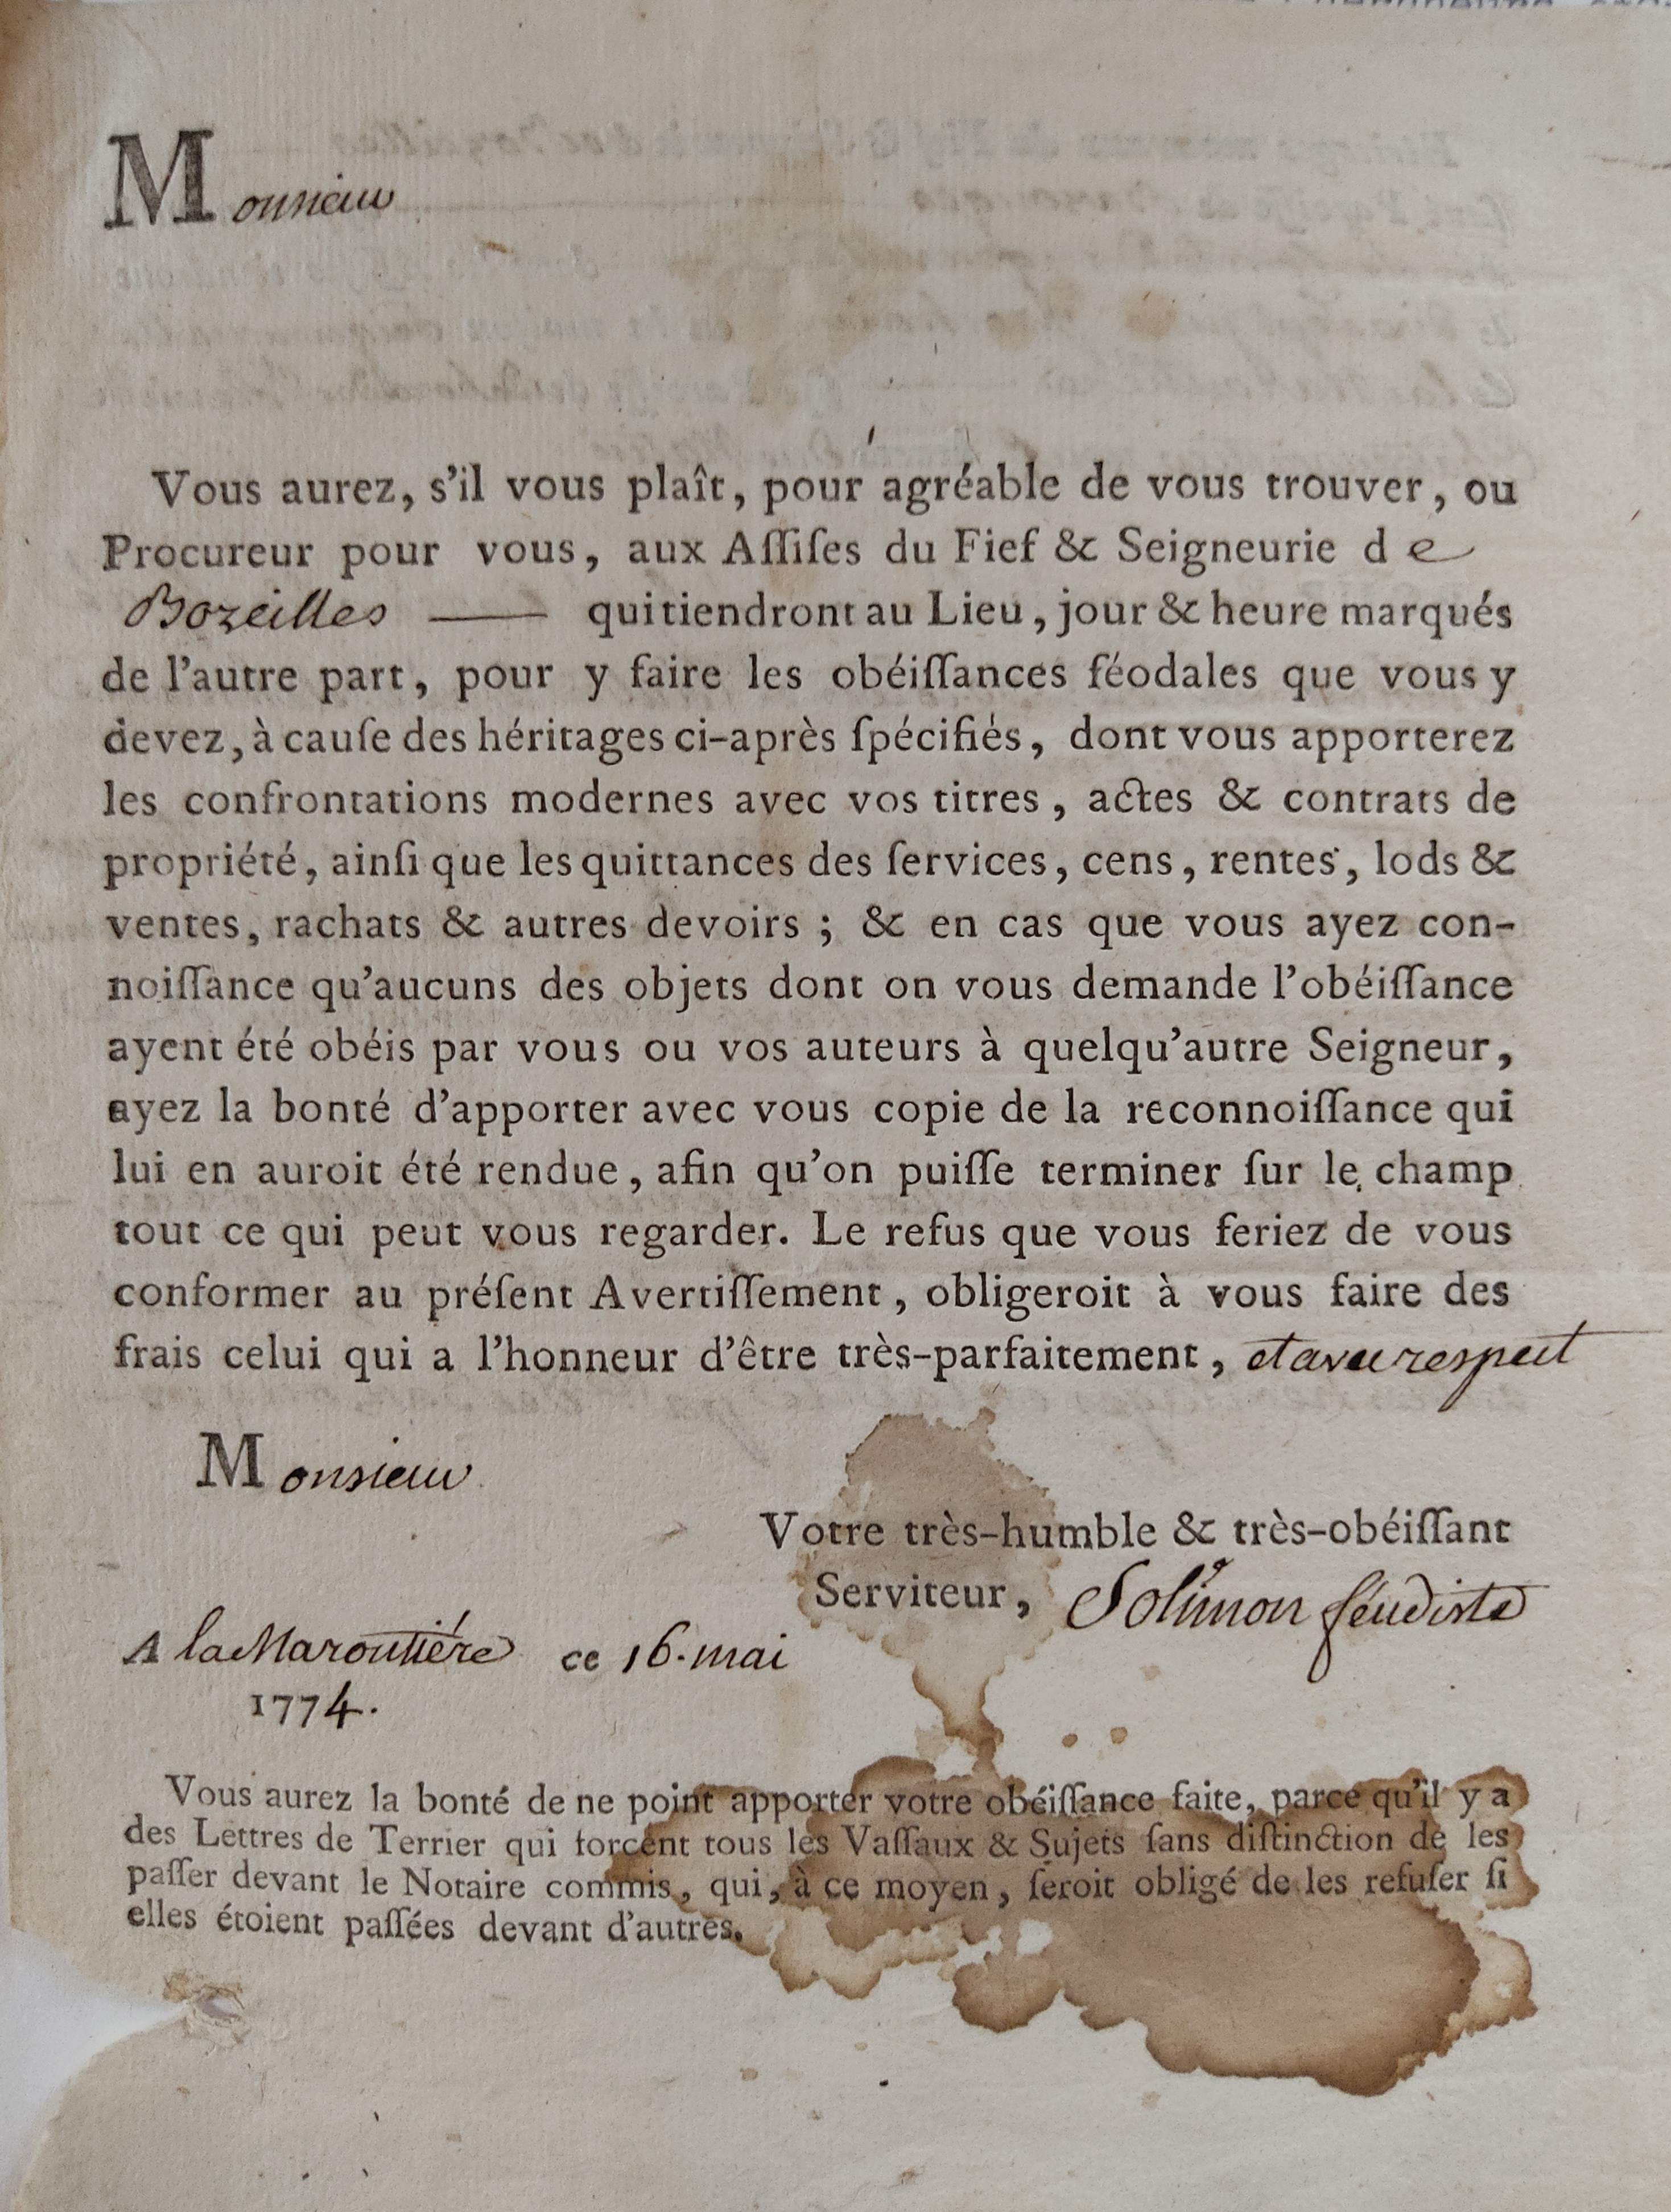 Monsieur
Vous aurez, s'il vous plaît, pour agréable de vous trouver, ou
Procureur pour vous, aux Aſſiſes du Fief & Seigneurie de
Bozeilles —— qui tiendront au Lieu, jour & heure marqués
de l'autre part, pour y faire les obéiſſances féodales que vous y
devez, à cauſe des héritages ci-après ſpécifiés, dont vous apporterez
les confrontations modernes avec vos titres, actes & contrats de
propriété, ainſi que les quittances des ſervices, cens, rentes, lods &
ventes, rachats & autres devoirs ; & en cas que vous ayez con-
noiſſance qu'aucuns des objets dont on vous demande l'obéiſſance
ayent été obéis par vous ou vos auteurs à quelqu'autre Seigneur,
ayez la bonté d'apporter avec vous copie de la reconnoiſſance qui
lui en auroit été rendue, afin qu'on puiſſe terminer ſur le champ
tout ce qui peut vous regarder. Le refus que vous feriez de vous
conformer au préſent Avertiſſement, obligeroit à vous faire des
frais celui qui a l'honneur d'être très-parfaitement, et avec respect
Monsieur
Votre très-humble & très-obéiſſant
Serviteur, Solimon féudiste
A la Maroutiére ce 16. mai
1774.
Vous aurez la bonté de ne point apporter votre obéiſſance faite, parce qu'il y a
des Lettres de Terrier qui forcent tous les Vaſſaux & Sujets ſans diſtinction de les
paſſer devant le Notaire commis, qui, à ce moyen, ſeroit obligé de les refuſer ſi
elles étoient paſſées devant d'autres.